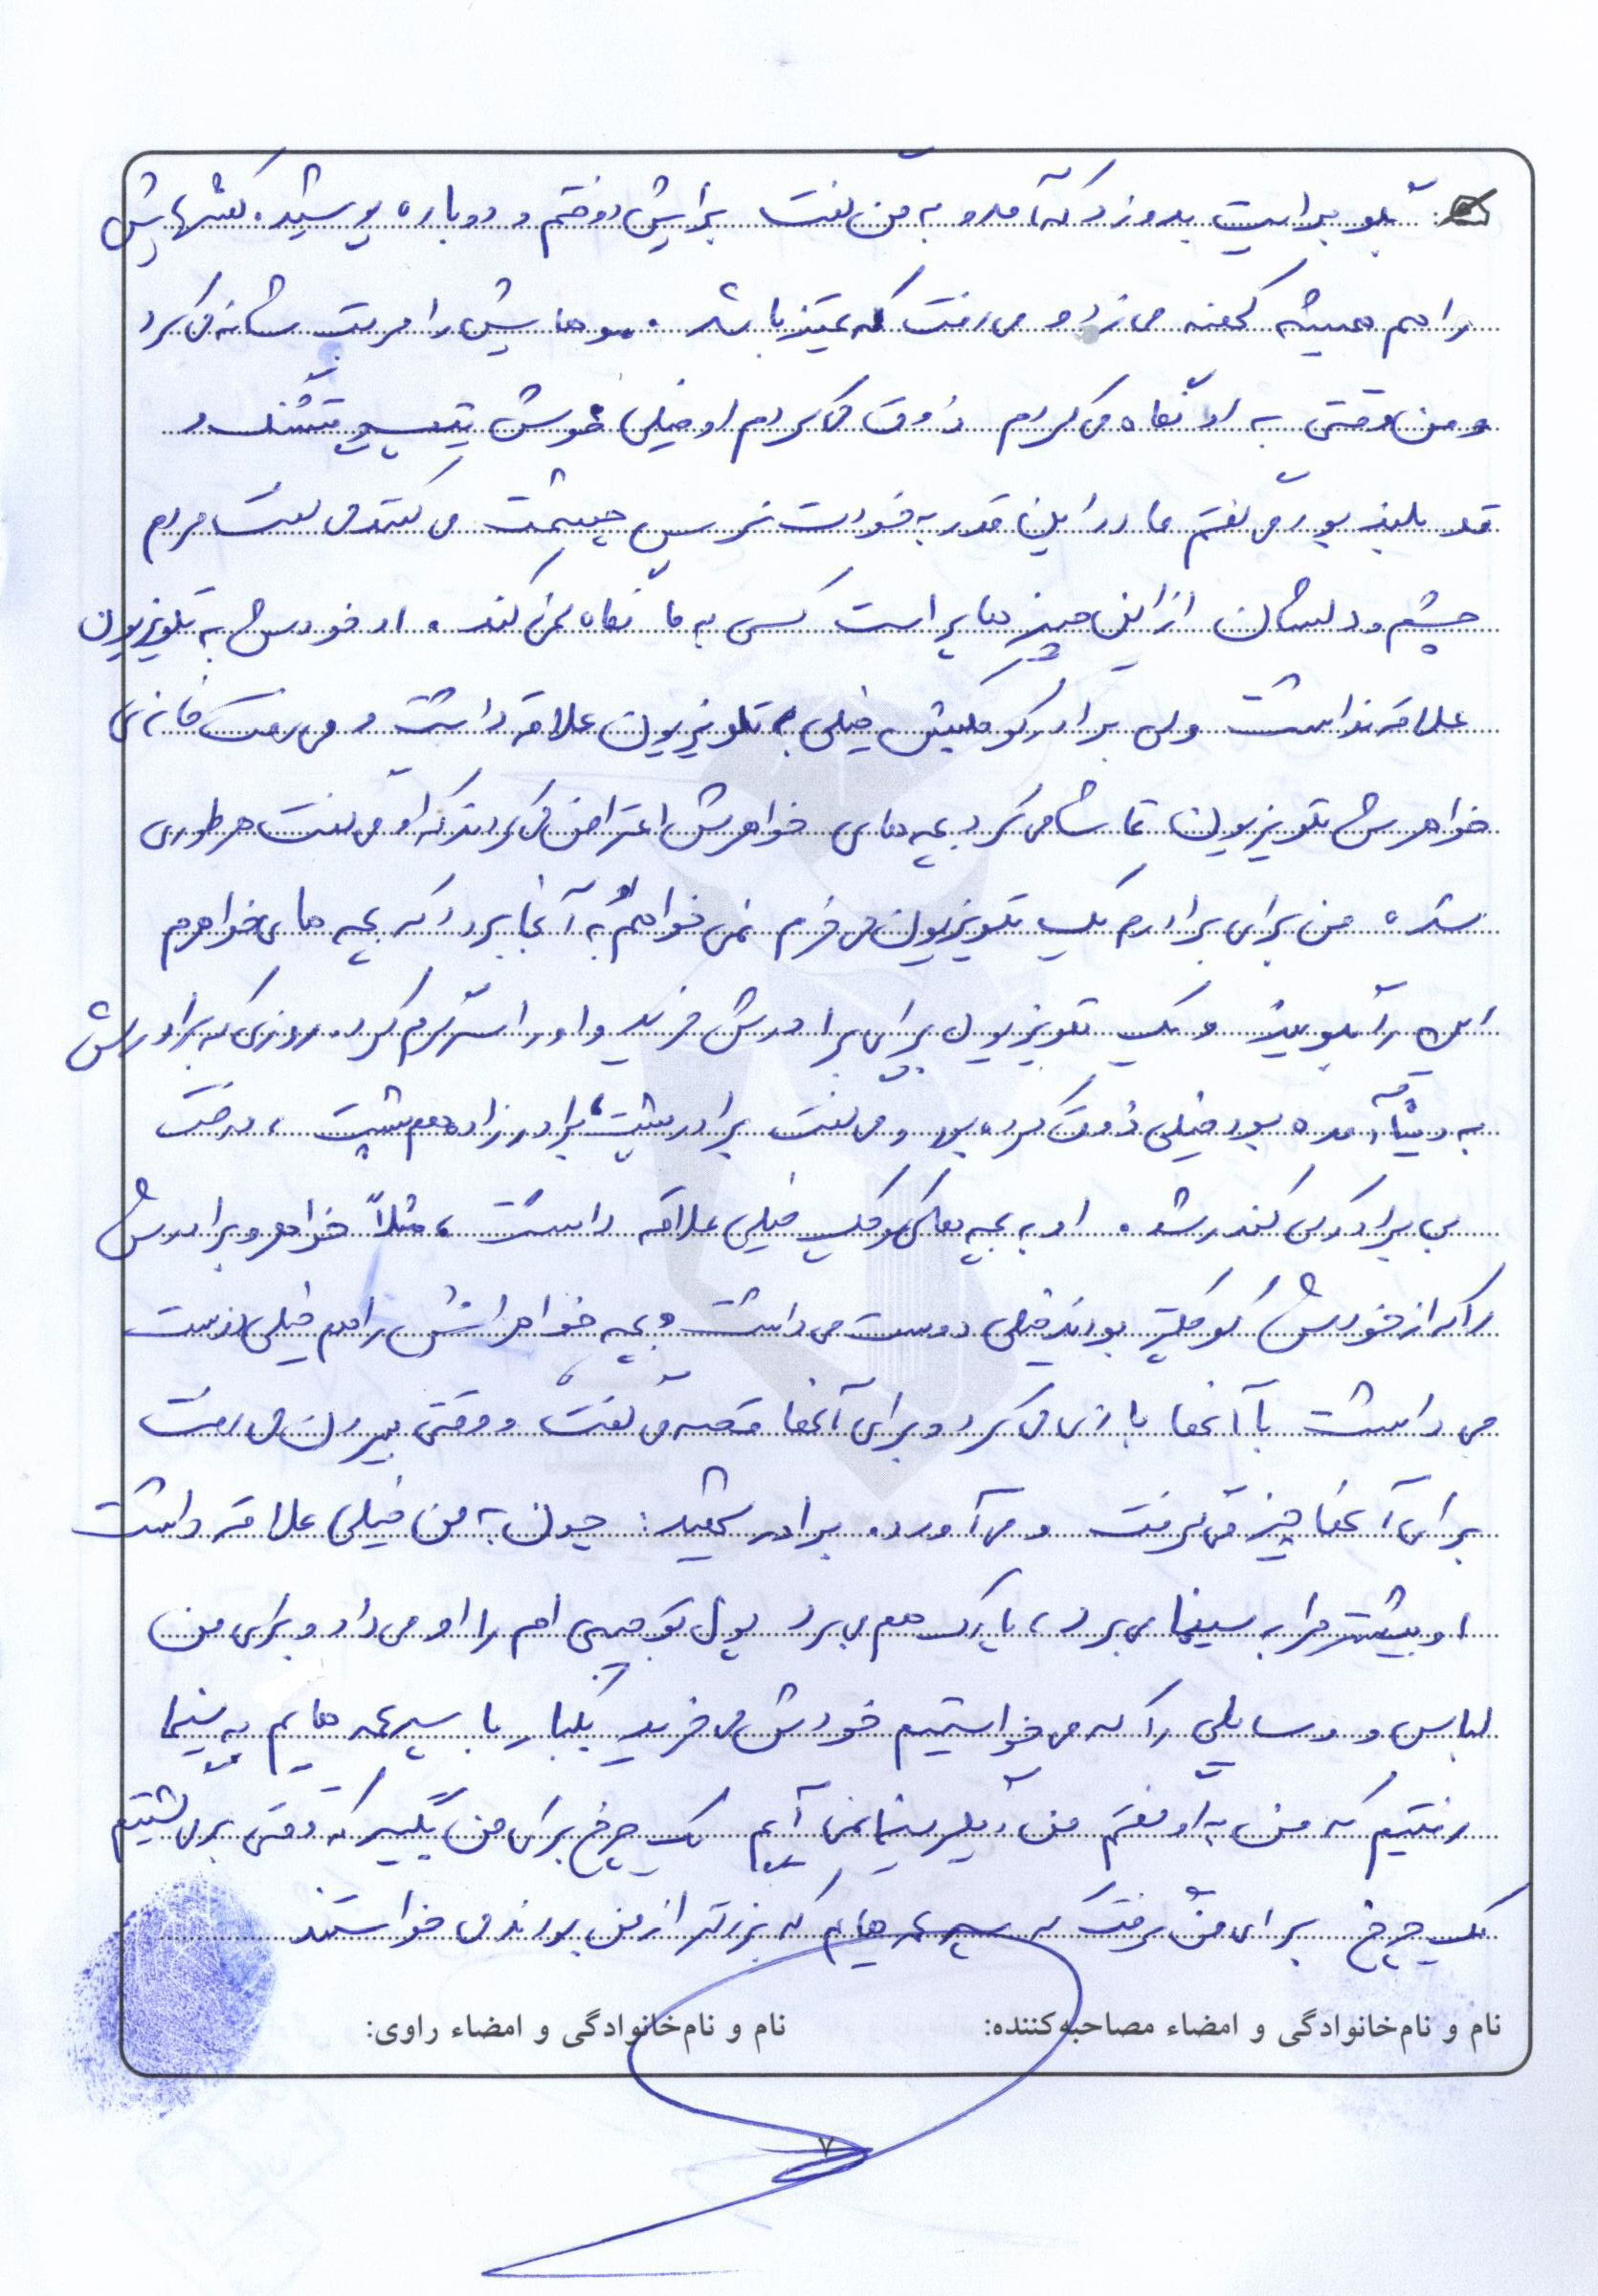 بگو برایت بدوزد که آمد و به من گفت برایش دوختم و دوباره پوشید. کفشهایش
را هم همیشه کهنه می‌زد و می‌رفت که تمیز باشد. موهایش را مرتب شانه می‌کرد
و من وقتی به او نگاه می‌کردم ذوق می‌کردم او خیلی خوش تیپ و قشنگ و
قد بلند بود می‌گفتم مادر این قدر به خودت نرس چشمت می‌کنند می‌گفت مردم
چشم و دلشان از این چیزها پر است کسی به ما نگاه نمی‌کند. او خودش به تلویزیون
علاقه نداشت ولی برادر کوچکیش خیلی به تلویزیون علاقه داشت و می‌رفت خانه‌ی
خواهرش تلویزیون تماشا می‌کرد بچه‌های خواهرش اعتراض می‌کردند که او می‌گفت هر طوری
شده من برای برادرم یک تلویزیون می‌خرم نمی‌خواهم او به آنجا برود که بچه‌های خواهرم
این را بگویند و یک تلویزیون برای برادرش خرید و او را سرگرم کرد. روزی که برادرش
به دنیا آمده بود خیلی ذوق کرده بود و می‌گفت برادر پشت، برادرزاده هم پشت، درخت
بی برادر کی کند رشد. او به بچه‌های کوچک خیلی علاقه داشت، مثلاً خواهر و برادرش
را که از خودش کوچکتر بودند خیلی دوست می‌داشت و بچه خواهرانش را هم خیلی دوست
می‌داشت با آنها بازی می‌کرد و برای آنها قصه می‌گفت و وقتی بیرون می‌رفت
برای آنها چیز می‌گرفت و می‌آورد. برادر شهید: چون به من خیلی علاقه داشت
او بیشتر مرا به سینما می‌برد، پارک هم می‌برد پول تو جیبی ام را او می‌داد و برای من
لباس و وسایلی را که می‌خواستیم خودش می‌خرید یکبار با پسر عمه‌هایم به سینما
رفتیم که من به او گفتم من دیگر سینما نمی‌آیم یک چرخ برای من بگیر که وقتی برمی‌گشتیم
یک چرخ برای من گرفت که پسر عمه‌هایم که بزرگتر از من بودند می‌خواستند
نام و نام‌خانوادگی و امضاء مصاحبه‌کننده: نام و نام‌خانوادگی و امضاء راوی:
۷